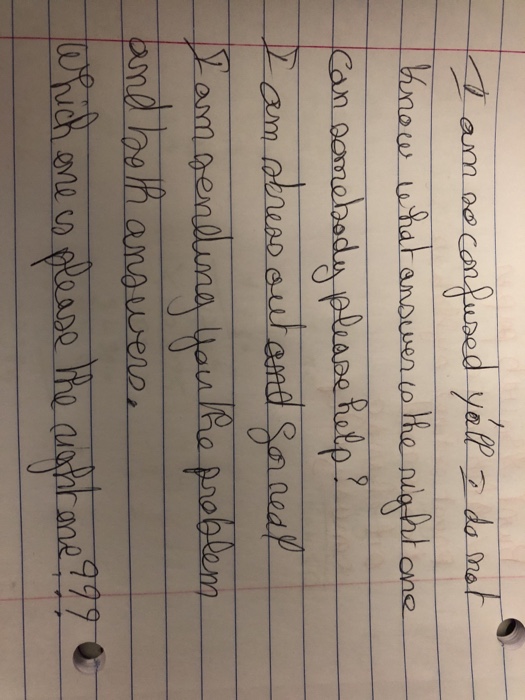 I am so confused y'all I do not
know what answer is the right one
Can somebody please help?
I am stress out and for real
I am sending you the problem
and both answers.
Which one is please the right one???